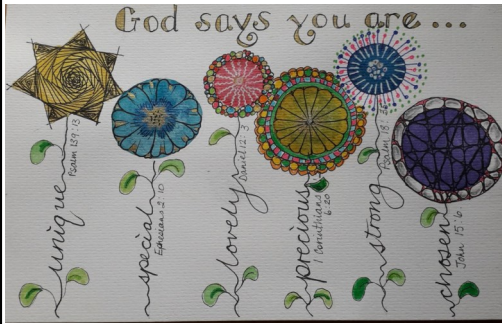 God says you are ...
unique
Psalm 139:13
special
Ephesians 2:10
lovely
Daniel 12:3
precious
1 Corinthians
6:20
strong
Psalm 18:
chosen
John 15:6